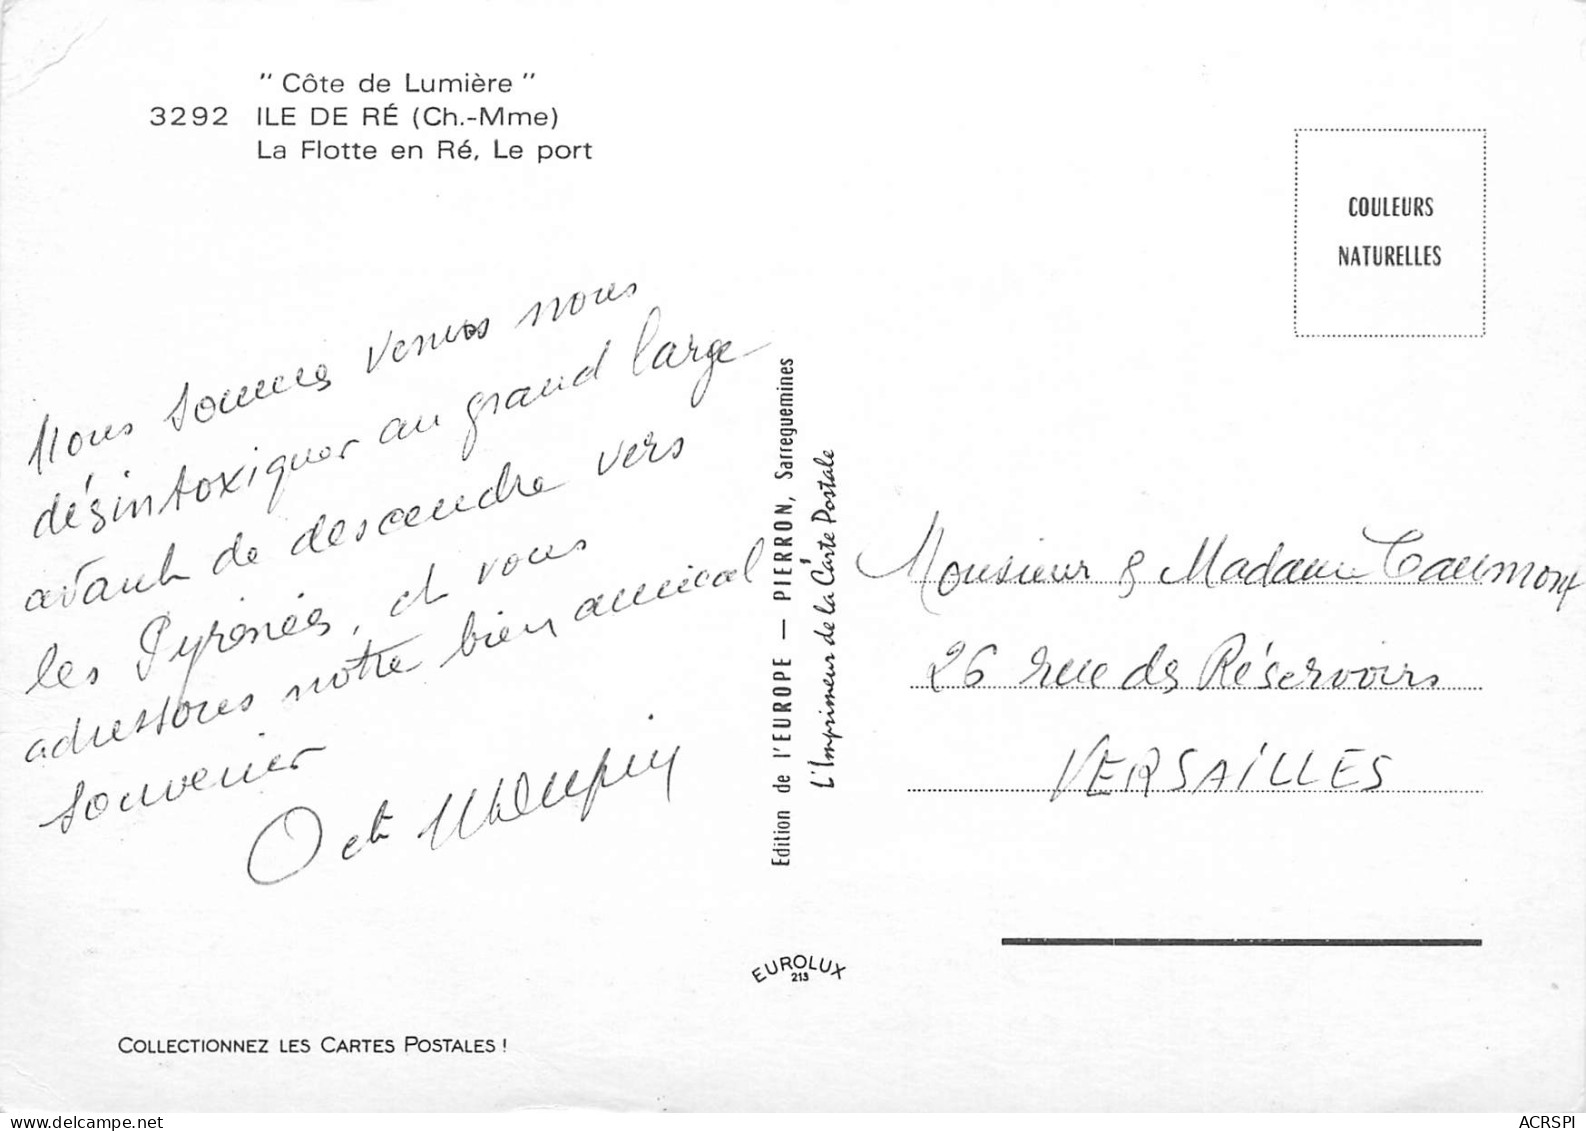 " Côte de Lumière "
3292 ILE DE RÉ (Ch.-Mme)
La Flotte en Ré, Le port
COULEURS
NATURELLES
Nous sommes venus nous
désintoxiquer au grand large
avant de descendre vers
les Pyrénées, et vous
adressons notre bien amical
souvenir
Oct
Edition de l'EUROPE — PIERRON, Sarreguemines
L'Imprimeur de la Carte Postale
Monsieur & Madame Caumont
26 rue des Réservoirs
VERSAILLES
EUROLUX
213
COLLECTIONNEZ LES CARTES POSTALES !
delcampe.net
ACRSPI